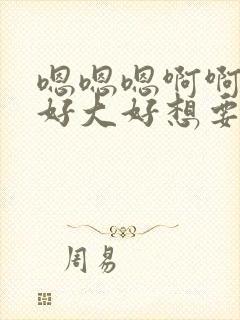 嗯嗯嗯啊啊
好大好想要
周易